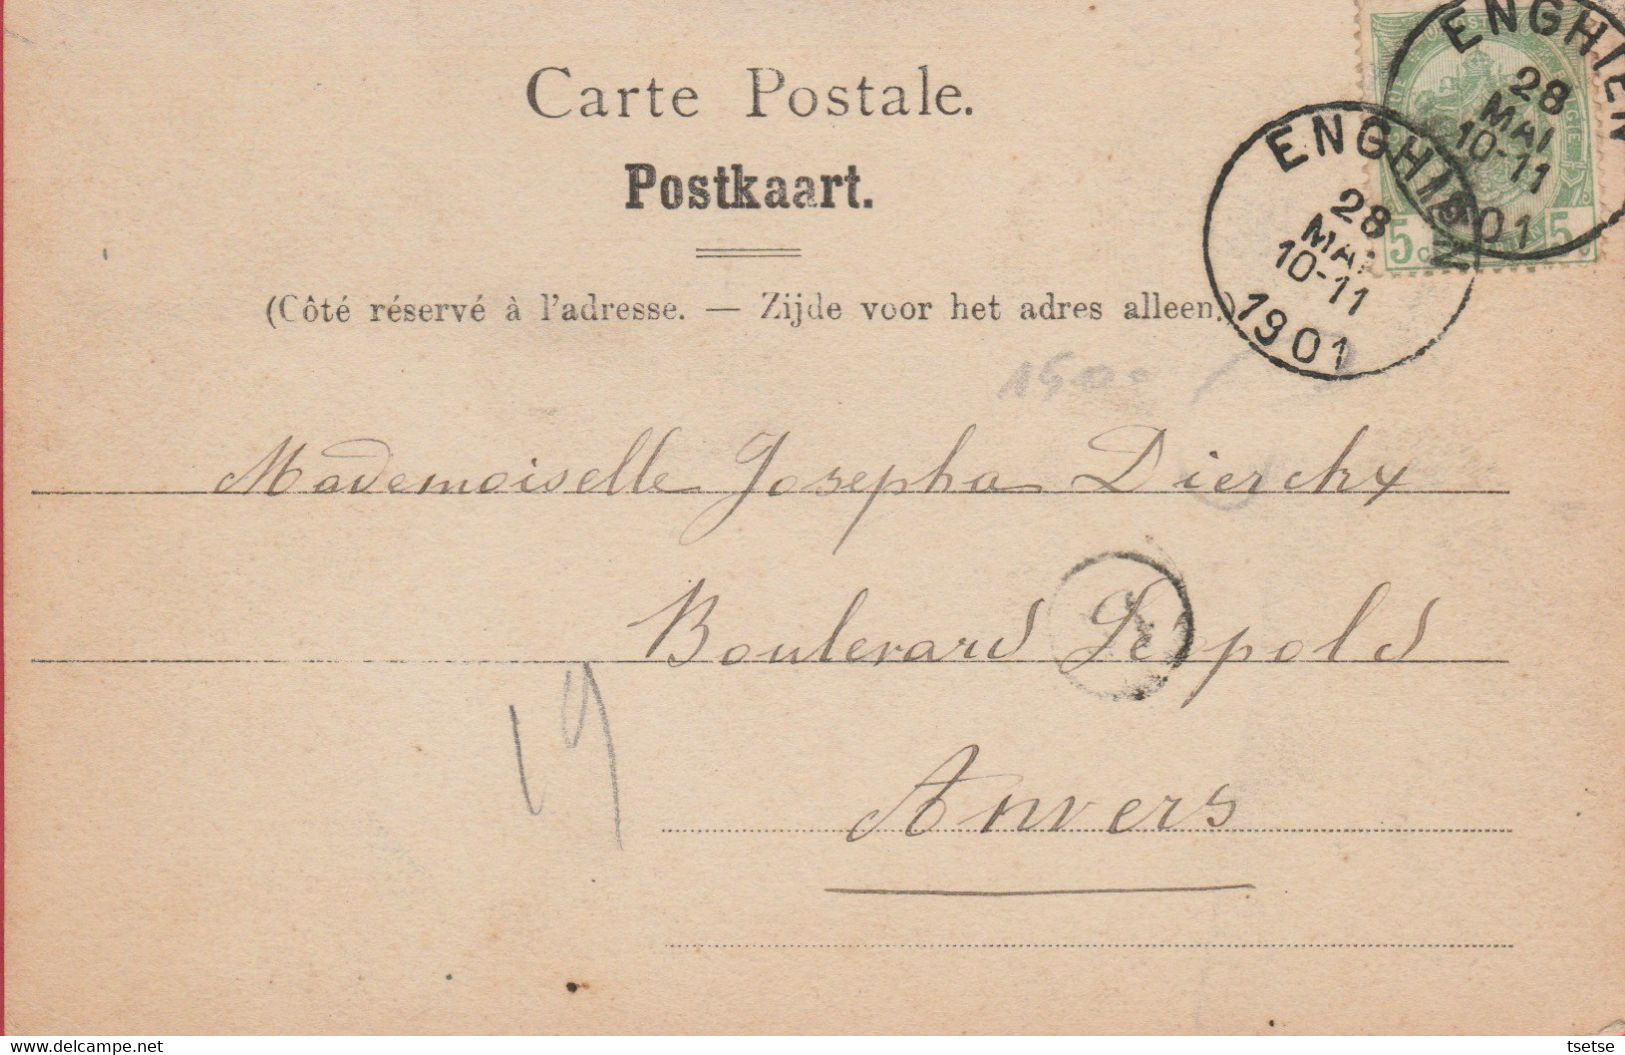 Carte Postale.
Postkaart.
(Côté réservé à l'adresse. — Zijde voor het adres alleen.)
ENGHIEN
28
MAI
10-11
1901
ENGHIEN
28
MAI
10-11
1901
5 5
Mademoiselle Josepha Dierckx
Boulevard Léopold
Anvers
19
www.delcampe.net
tsetse